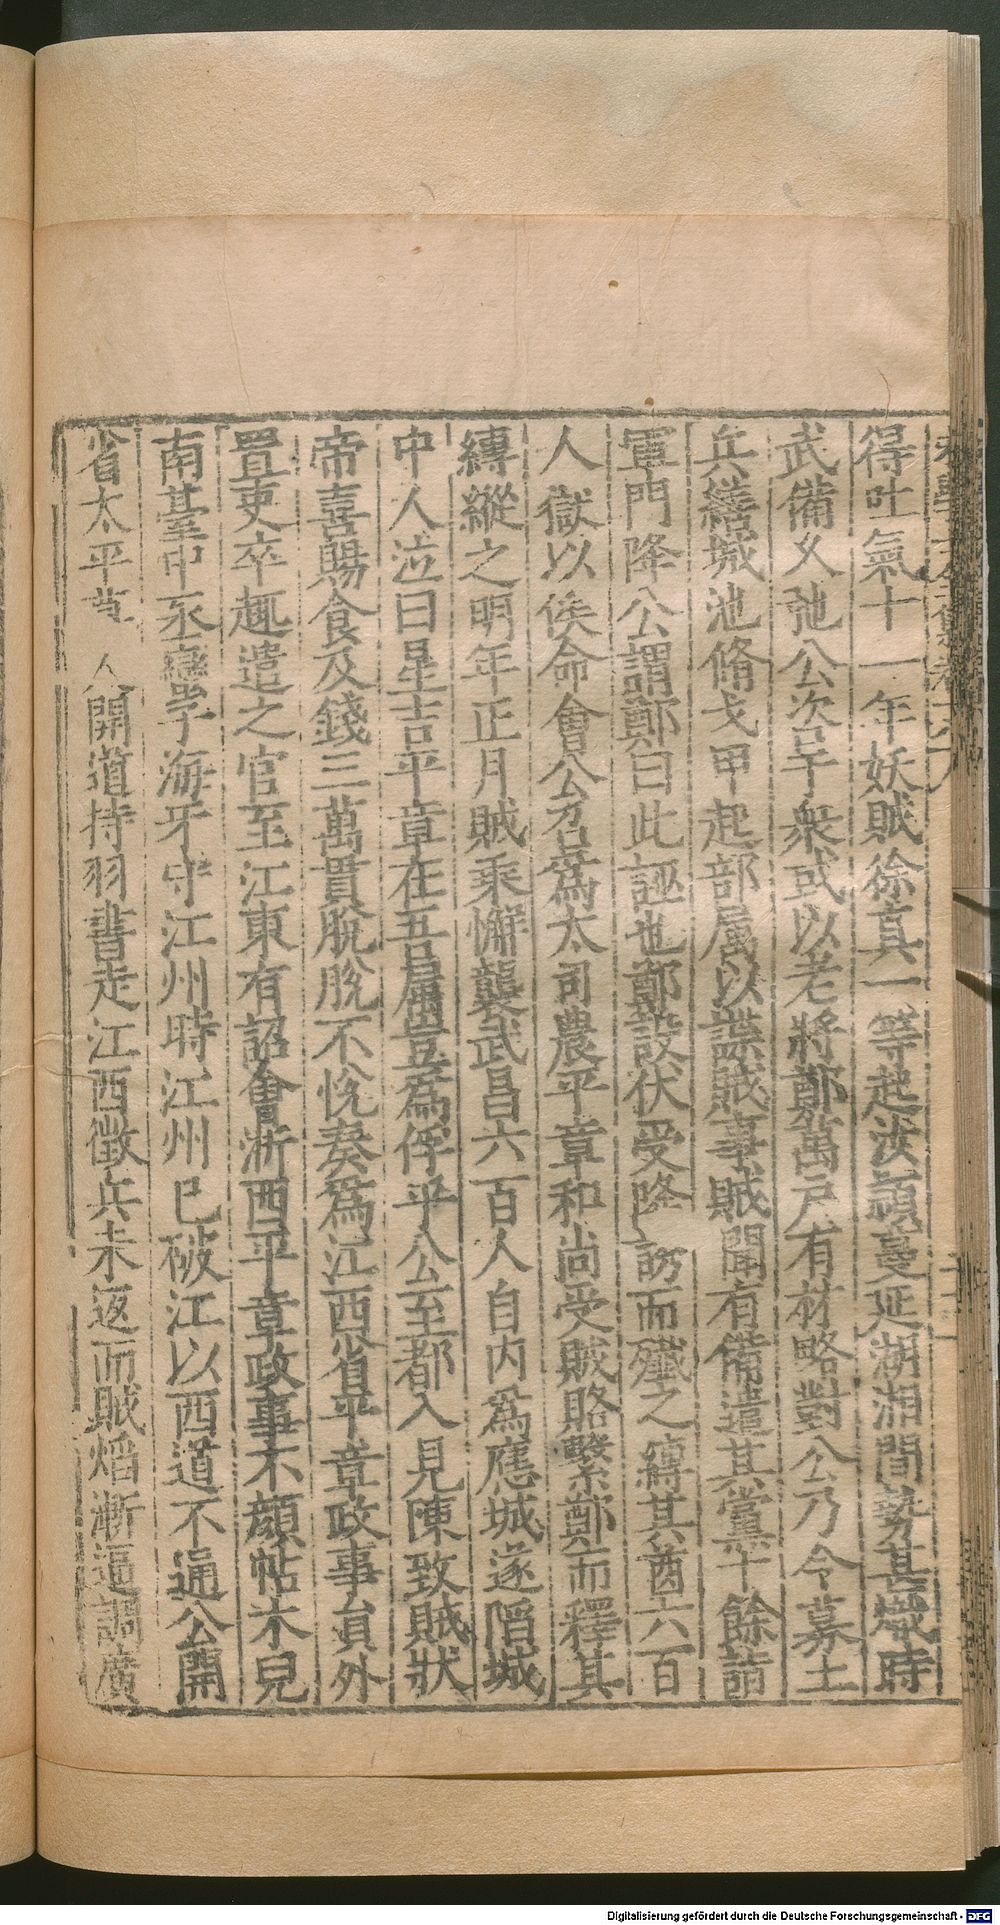 得吐氣十一年妖賊徐真一等起汝潁蔓延湖湘間勢甚熾時
武備乂弛公咨于衆或以老將鄭萬戶有材略對公乃令募土
兵繕城池脩戈甲起部属以諜賊事賊聞有備遣其黨十餘詣
軍門降公謂鄭曰此誣也鄭設伏受降訪而殲之縛其酋六百
人獄以俟命會公召爲太司農平章和尚受賊賂繫鄭而釋其
縛縱之明年正月賊乘懈襲武昌六百人自内爲應城遂陷城
中人泣曰星吉平章在吾屬豈爲俘乎公至都入見陳致賊狀
帝喜賜食及錢三萬貫脫脫不悅奏爲江西省平章政事員外
置吏卒趣遣之官至江東有詔會浙西平章政事不顔帖木兒
南臺中丞蠻子海牙守江州時江州已破江以西道不通公開
省太平 開道持羽書走江西徵兵未返而賊熖漸逼調廣
Digitalisierung gefördert durch die Deutsche Forschungsgemeinschaft - DFG